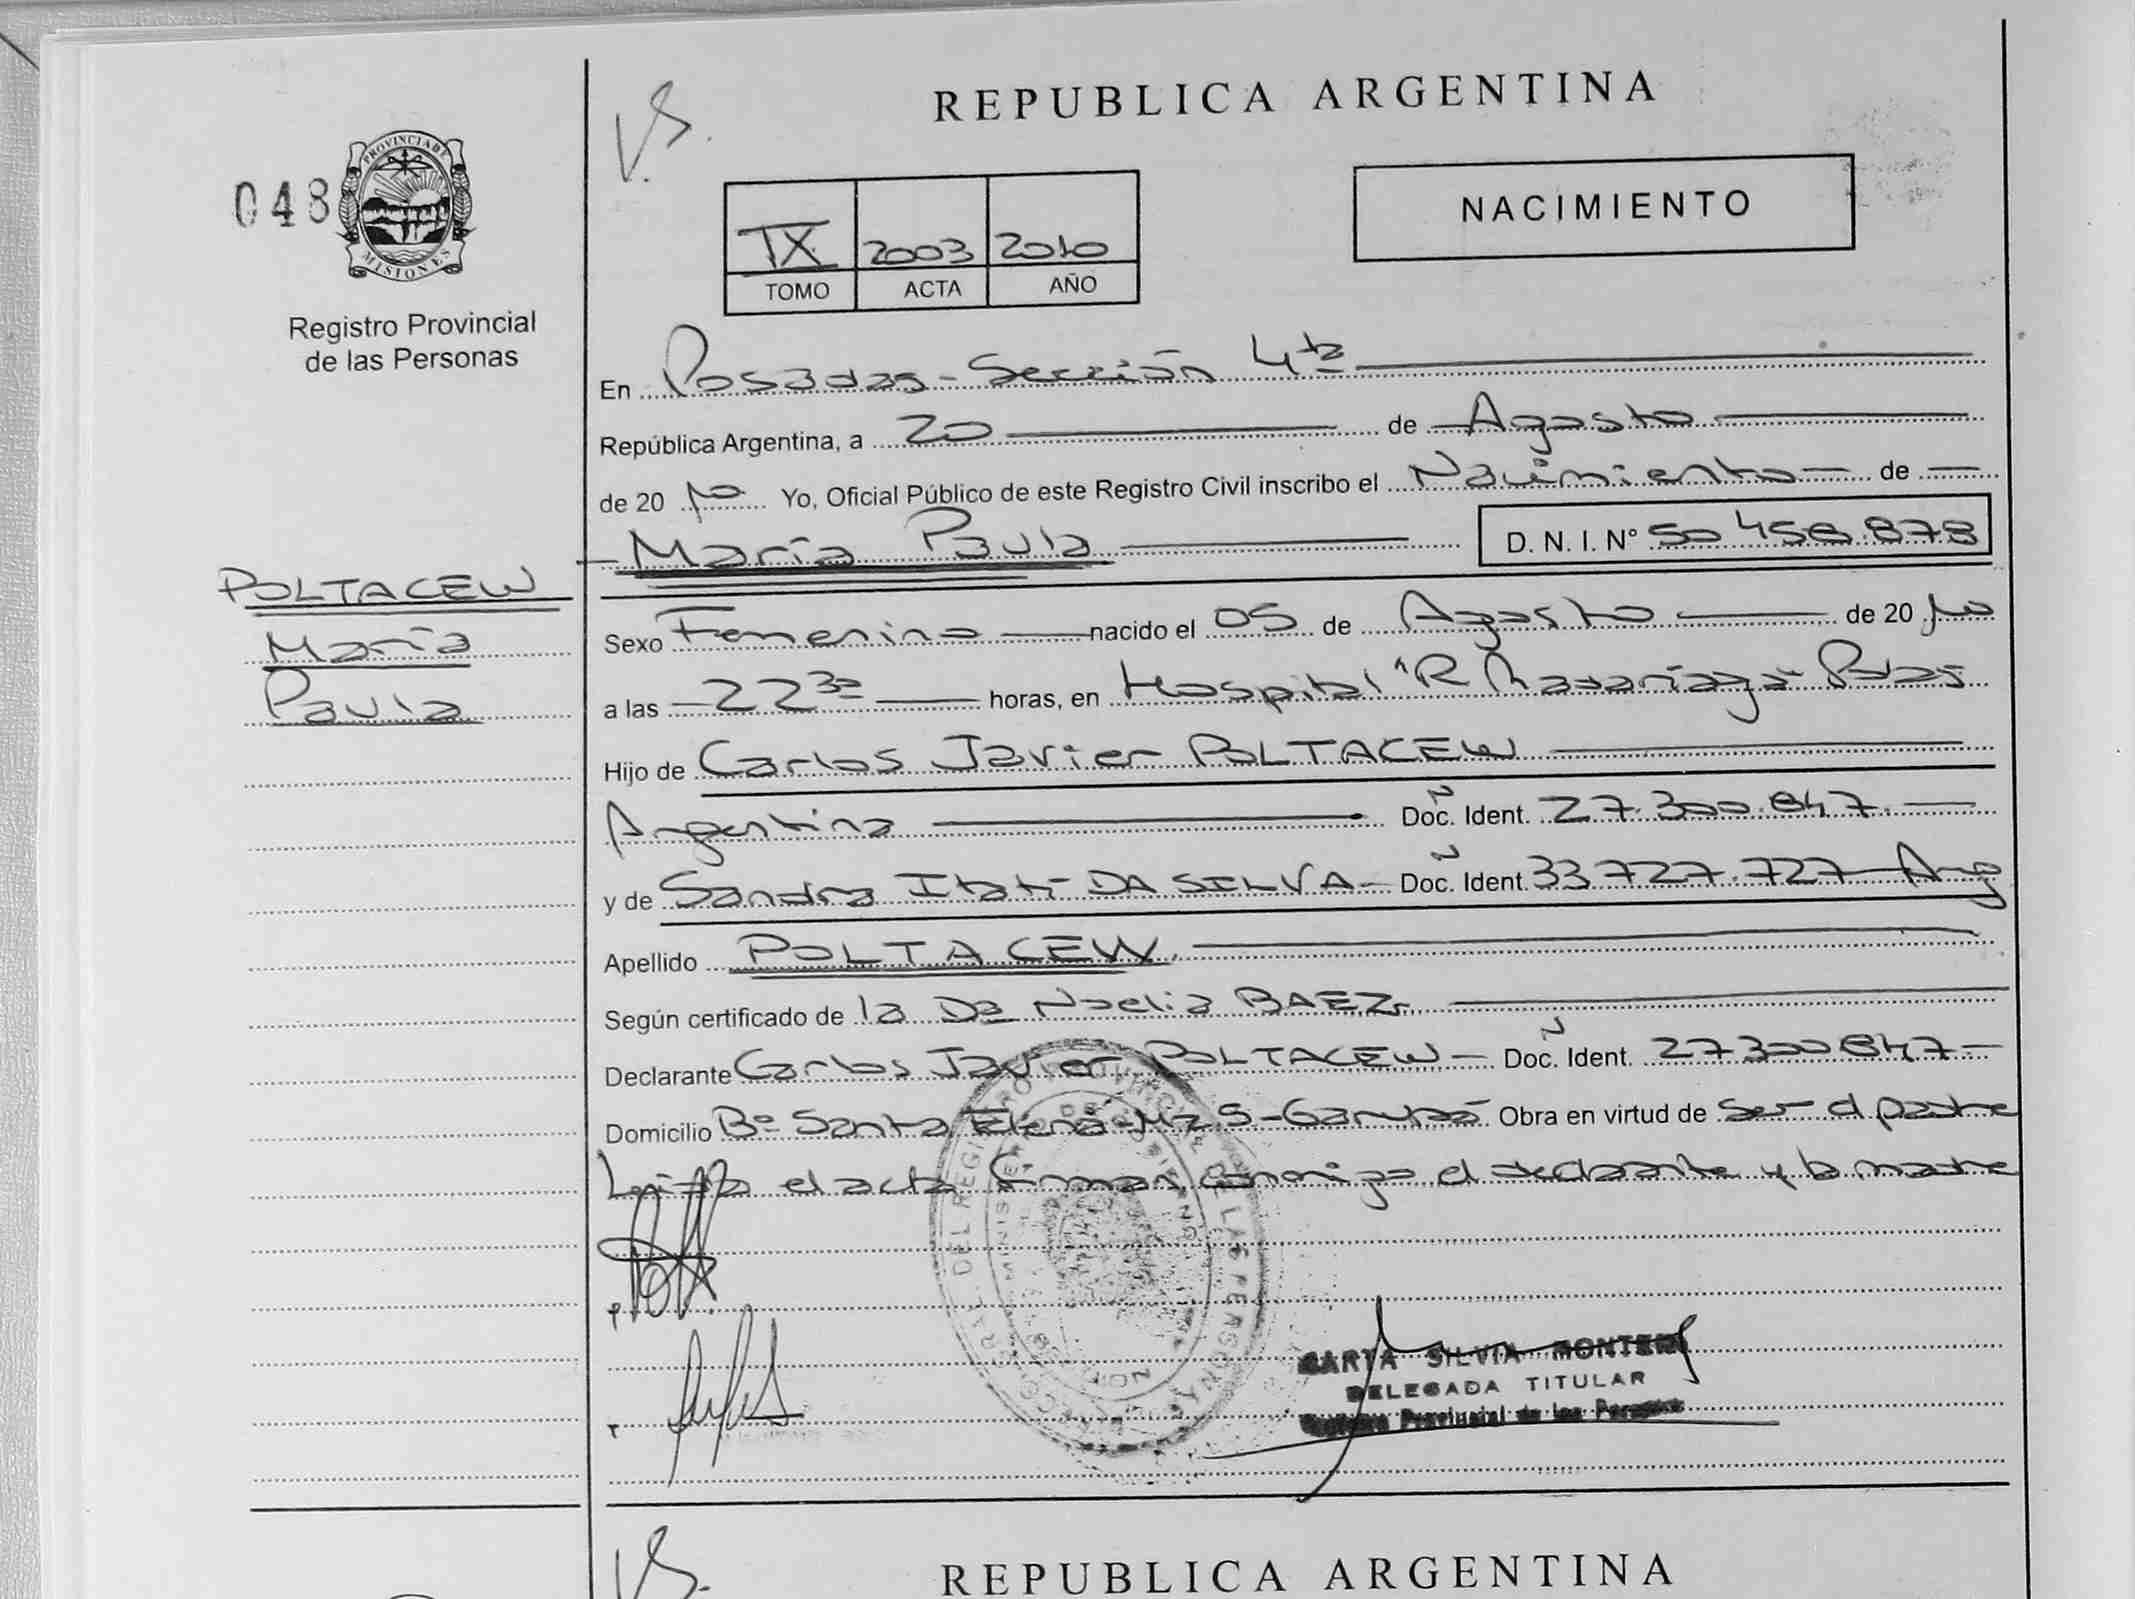 048
PROVINCIA DE
MISIONES
Registro Provincial
de las Personas
POLTACEW
María
Paula
V.S.
REPUBLICA ARGENTINA
NACIMIENTO
IX 2003 2010
TOMO ACTA AÑO
En Posadas - Sección 4ta
República Argentina, a 20 de Agosto
de 20 10 Yo, Oficial Público de este Registro Civil inscribo el Nacimiento de
María Paula D. N. I. N° 50 458.878
Sexo Femenino nacido el 05 de Agosto de 20 10
a las 22 30 horas, en Hospital "R Madariaga" Pdas
Hijo de Carlos Javier POLTACEW
Argentina Doc. Ident. 27.300.847.
y de Sandra Itatí DA SILVA - Doc. Ident. 33 727.727 Arg
Apellido POLTACEW.
Según certificado de la Da Noelia BAEZ
Declarante Carlos Javier POLTACEW - Doc. Ident. 27300847-
Domicilio B° Santa Elena - Mz. 5 - Garupá Obra en virtud de ser el padre
el acta firman conmigo el declarante y la madre
SILVIA
DELEGADA TITULAR
Provincial de las
V.S.
REPUBLICA ARGENTINA